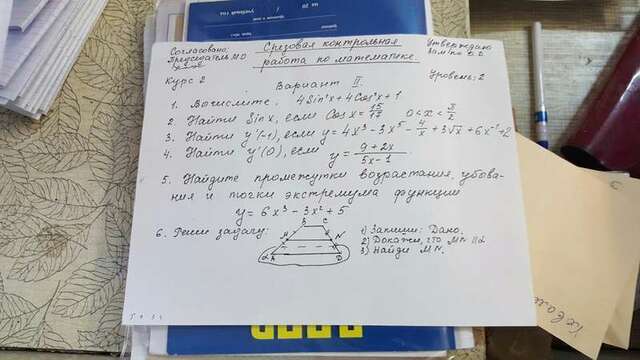 Согласовано:
Председатель МО
Срезовая контрольная
работа по математике.
Утверждаю
Курс 2
Уровень: 2
Вариант II.
1. Вычислите. 4Sin²x+4Cos²x+1
2. Найти Sin x, если Cos x = 15/17 0<x<π/2
3. Найти y'(-1), если y=4x³-3x⁵-4/x+3√x+6x⁻¹+2
4. Найти y'(0), если y=(9+2x)/(5x-1)
5. Найдите промежутки возрастания, убова-
ния и точки экстремума функции
y=6x³-3x²+5
6. Реши задачу:
1) Запиши: Дано.
2) Докажи, что MN ∥ α
3) Найди MN.
B C
M N
α A D